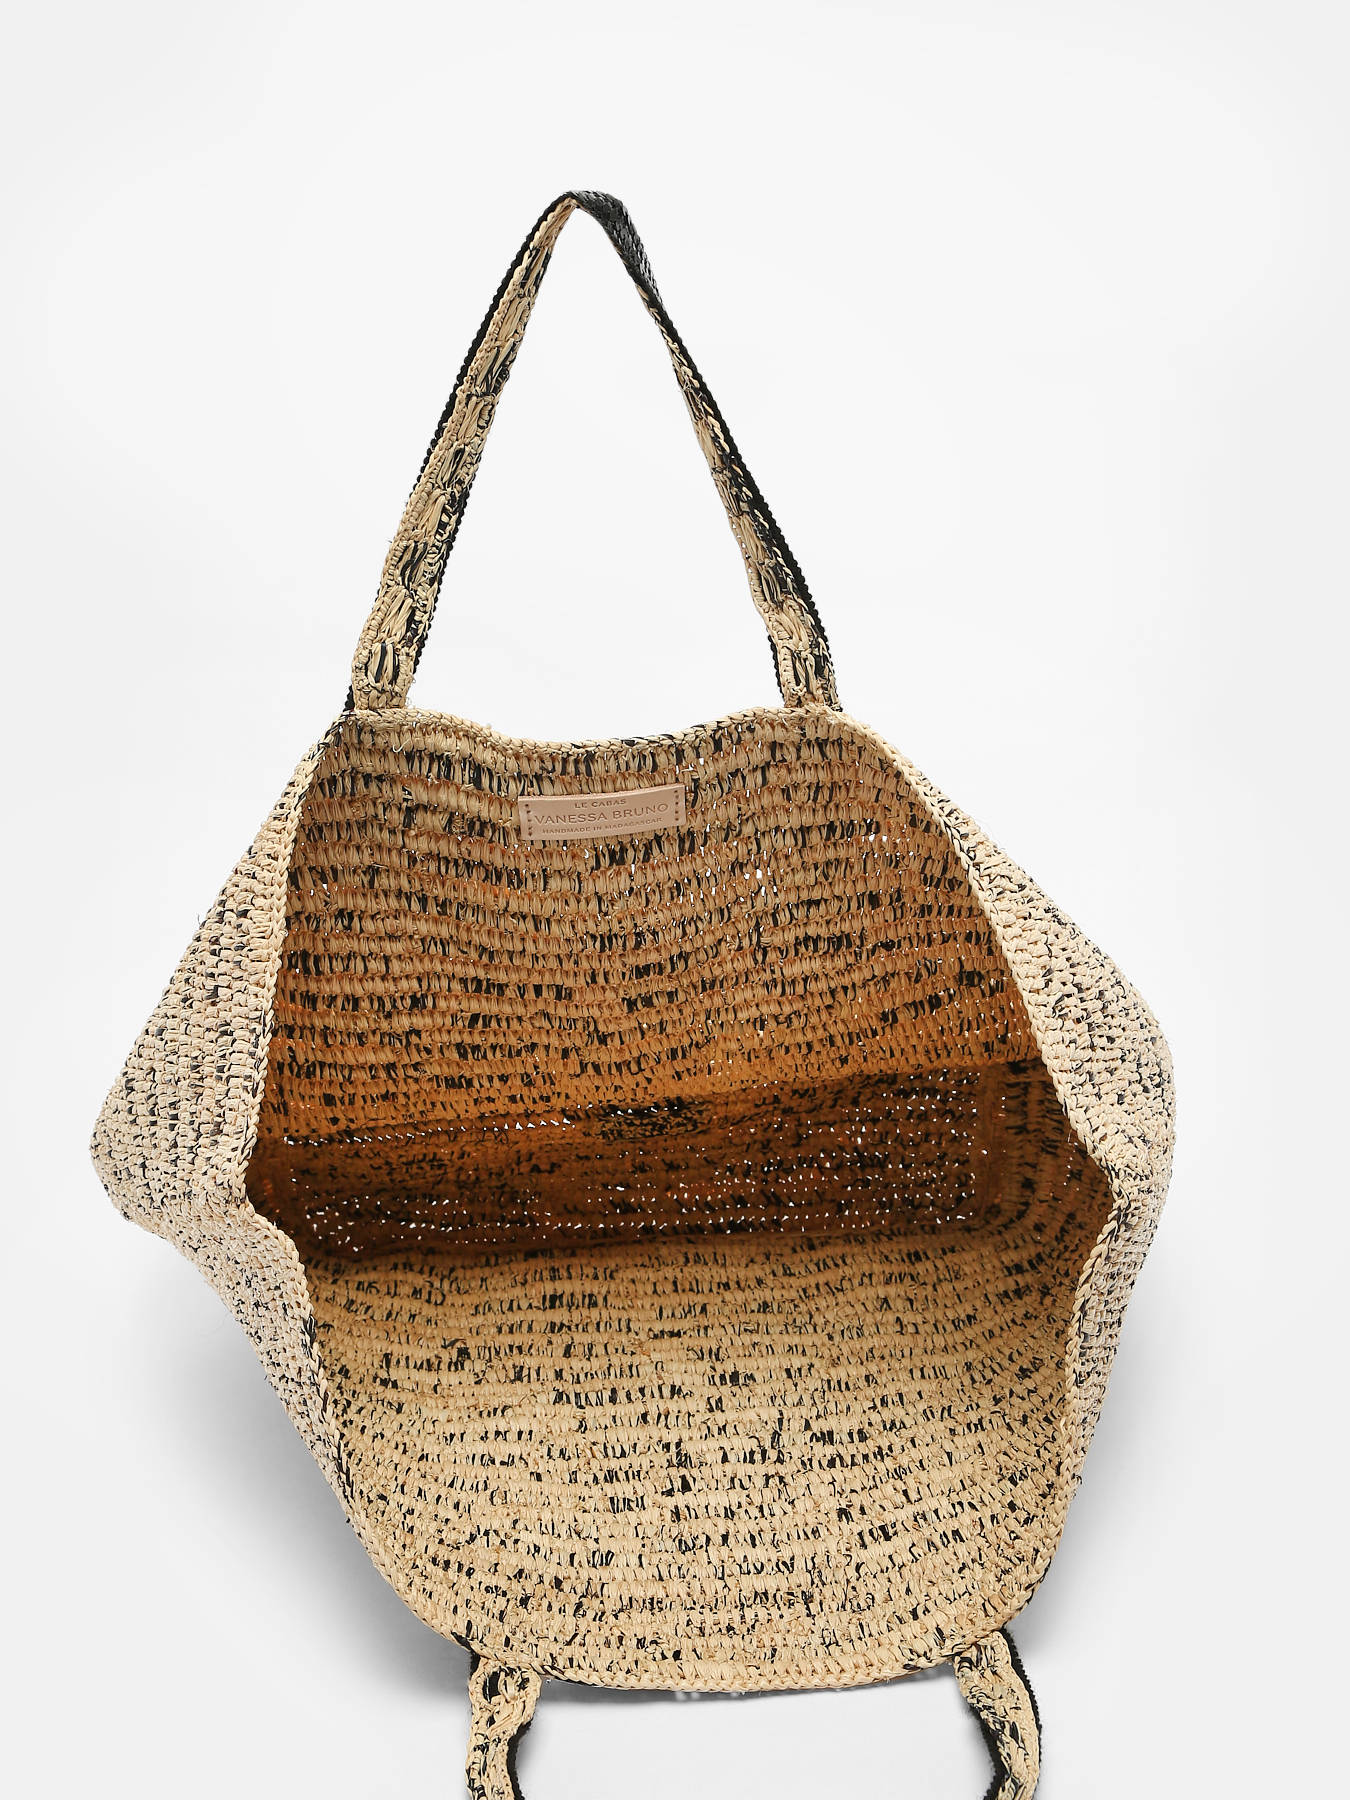 LE CABAS
VANESSA BRUNO
HANDMADE IN MADAGASCAR